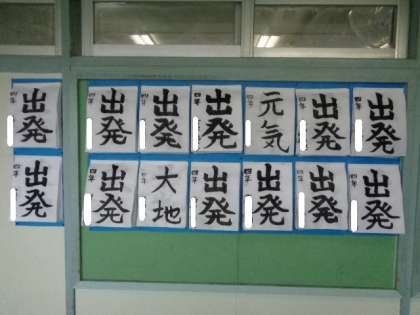 出発 四年
出発 四年
出発 四年
出発 四年
元気 四年
出発 四年
出発 四年
出発 四年
出発 四年
大地 四年
出発 四年
出発 四年
出発 四年
出発 四年